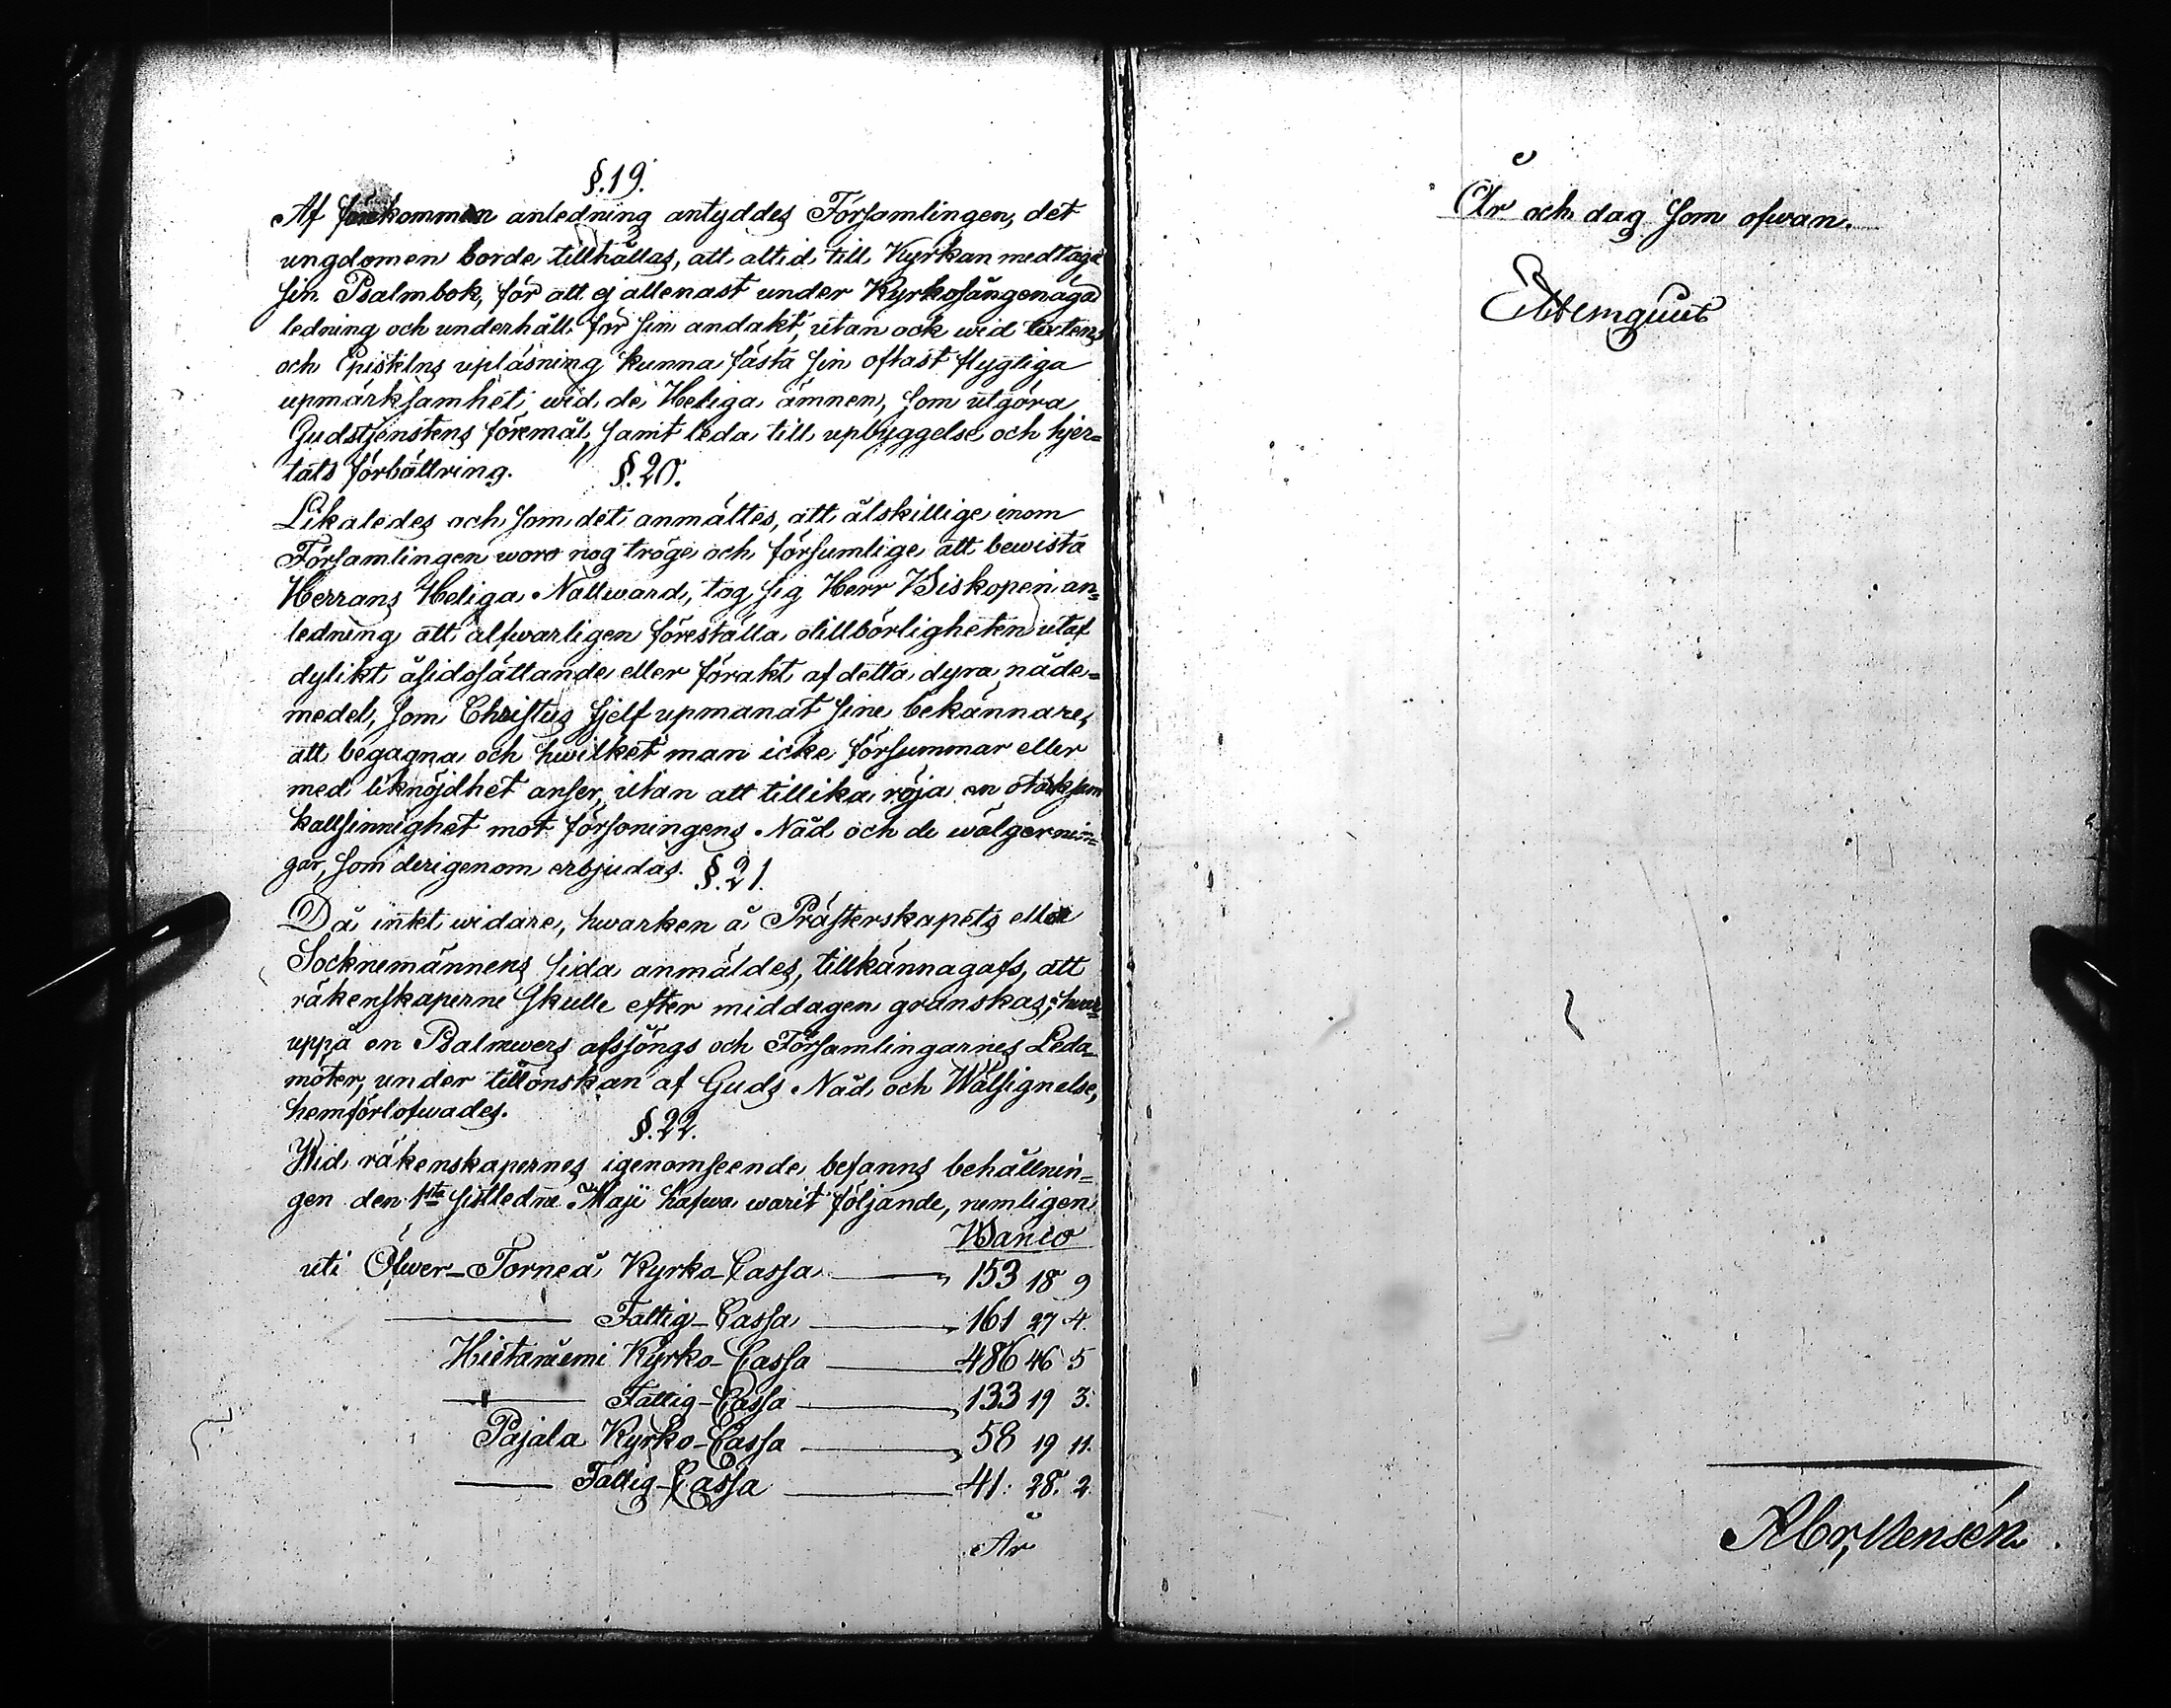 §. 19.
Af förekommen anledning antyddes Församlingen, det
ungdomen borde tillhållas, att altid till Kyrkan medtaga
sin Psalmbok, för att ej allenast under Kyrkosången äga
ledning och underhåll för sin andakt, utan ock wid textens
och Epistelns upläsning kunna fästa sin oftast flygtiga
upmärksamhet wid de Heliga ämnen, som utgöra
Gudstjenstens föremål, samt leda till upbyggelse och hjer=
tats förbättring.
§. 20.
Likaledes och som det anmältes, att åtskillige inom
Församlingen woro nog tröge och försumlige att bewista
Herrans Heliga Nattward, tog sig Herr Biskopen an=
ledning att alfwarligen föreställa otillbörligheten utaf
dylikt åsidosättande eller förakt af detta dyra nåde=
medel, som Christus sjelf upmanat sine bekännare,
att begagna och hwilket man icke försummar eller
med liknöjdhet anser, utan att tillika röja en otacksam
kallsinnighet mot försoningens Nåd och de wälgernin=
gar, som derigenom erbjudas.
§. 21.
Då intet widare, hwarken å Prästerskapets eller
Socknemännens sida anmäldes, tillkännagafs, att
räkenskaperne skulle efter middagen granskas; hwar=
uppå en Psalmwers afsjöngs och Församlingarnes Leda=
möter, under tillönskan af Guds Nåd och Wälsignelse,
hemförlofwades.
§. 22.
Wid räkenskapernes igenomseende befanns behållnin=
gen den 1sta sistledne Maji hafwa warit följande, nemligen
Banco
uti Öfwer-Torneå Kyrko-Cassa — 153 18 9
— Fattig-Cassa — 161 27 4.
Hietaniemi Kyrko-Cassa — 486 46 5
— Fattig-Cassa — 133 19 3.
Pajala Kyrko-Cassa — 58 19 11.
— Fattig-Cassa — 41: 28. 2.
År
År och dag som ofwan.